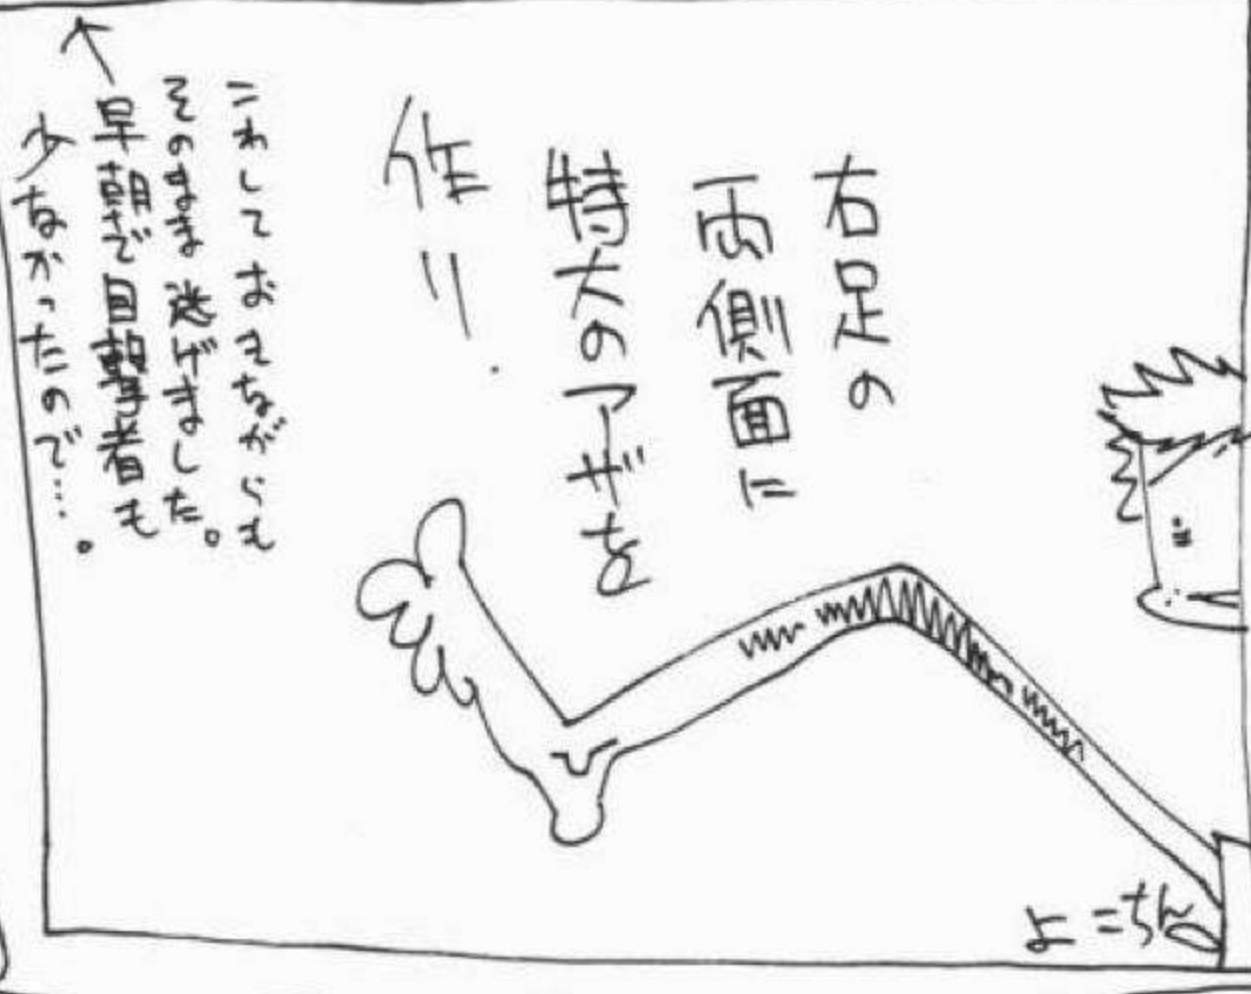 右足の
両側面に
特大のアザを
作り、
こわしておきながらも
そのまま逃げました。
早朝で目撃者も
少なかったので…。
よこちん